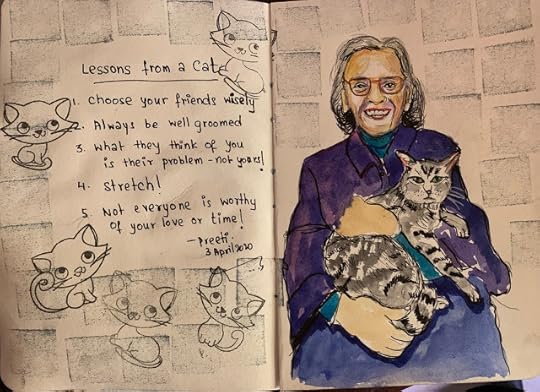 Lessons from a Cat
1. Choose your friends wisely
2. Always be well groomed
3. What they think of you
is their problem - not yours!
4. Stretch!
5. Not everyone is worthy
of your love or time!
- Preeti
3 April 2020